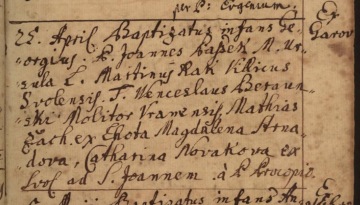 per P: Eugenium.
25. April Baptizatus infans Ge- Ex
orgius: P. Joannes Baßek M. Ur- Garov
sula L. Martinus Rati Villicus
Svolensis. T. Venceslaus Beraun-
ski Molitor Vranensis Mathias
Zach ex Lhota Magdalena Arna-
dova, Catharina Novakova ex
Lvol ad S. Joannem. à P. Procopio.
Baptizatus infans Ex